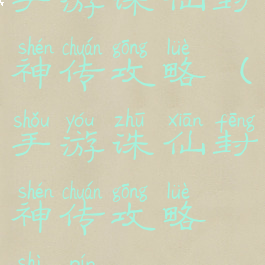 手游诛仙封
shén chuán gōng lüè
神传攻略（
shǒu yóu zhū xiān fēng
手游诛仙封
shén chuán gōng lüè
神传攻略
shì pín